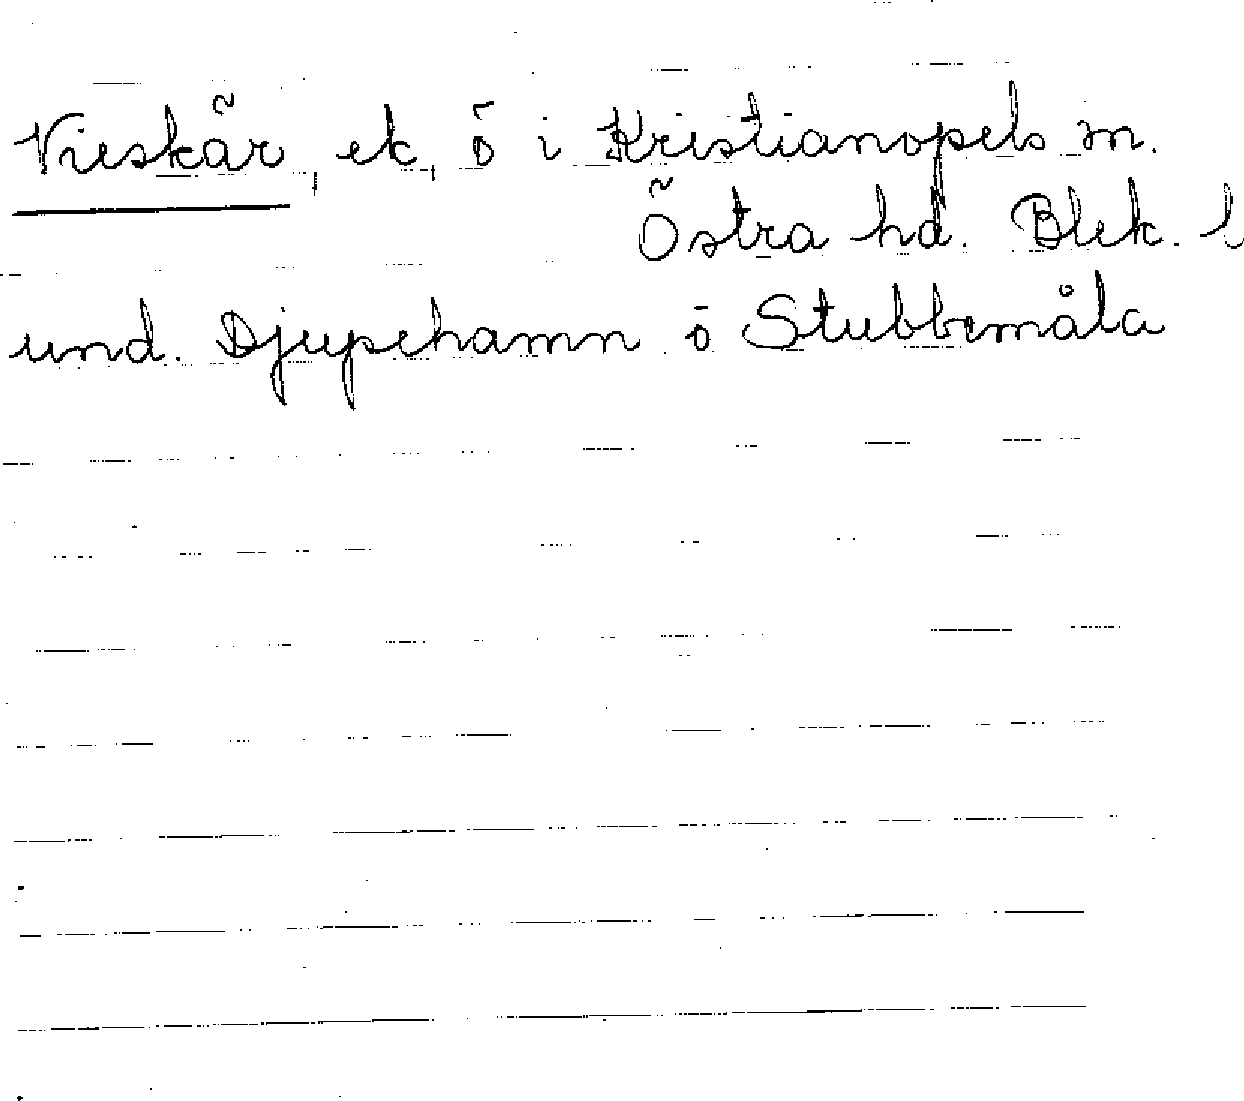 Vieskär, ek, ö i Kristianopels sn.
Östra hd. Blek. l
und. Djupehamn o Stubbemåla